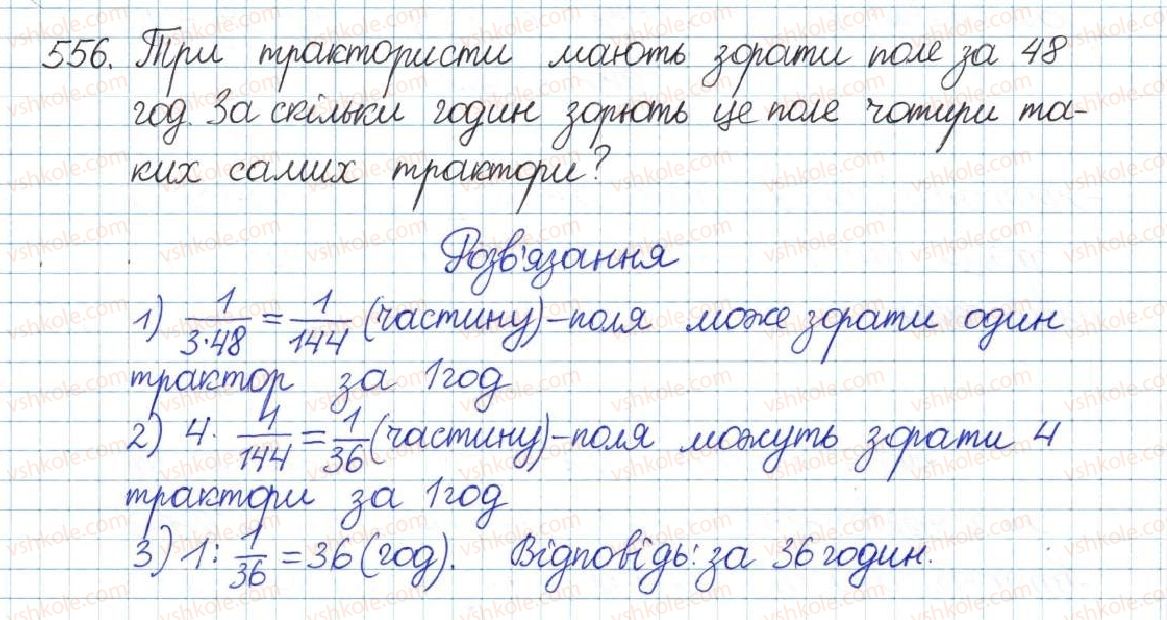 556. Три трактористи мають зорати поле за 48
год. За скільки годин зорють це поле чотири та-
ких самих трактори?
Розв'язання
1) 1/(3·48) = 1/144 (частину) – поля може зорати один
трактор за 1 год
2) 4 · 4/144 = 1/36 (частину) – поля можуть зорати 4
трактори за 1 год
3) 1 : 1/36 = 36 (год). Відповідь: за 36 годин.
vshkole.com